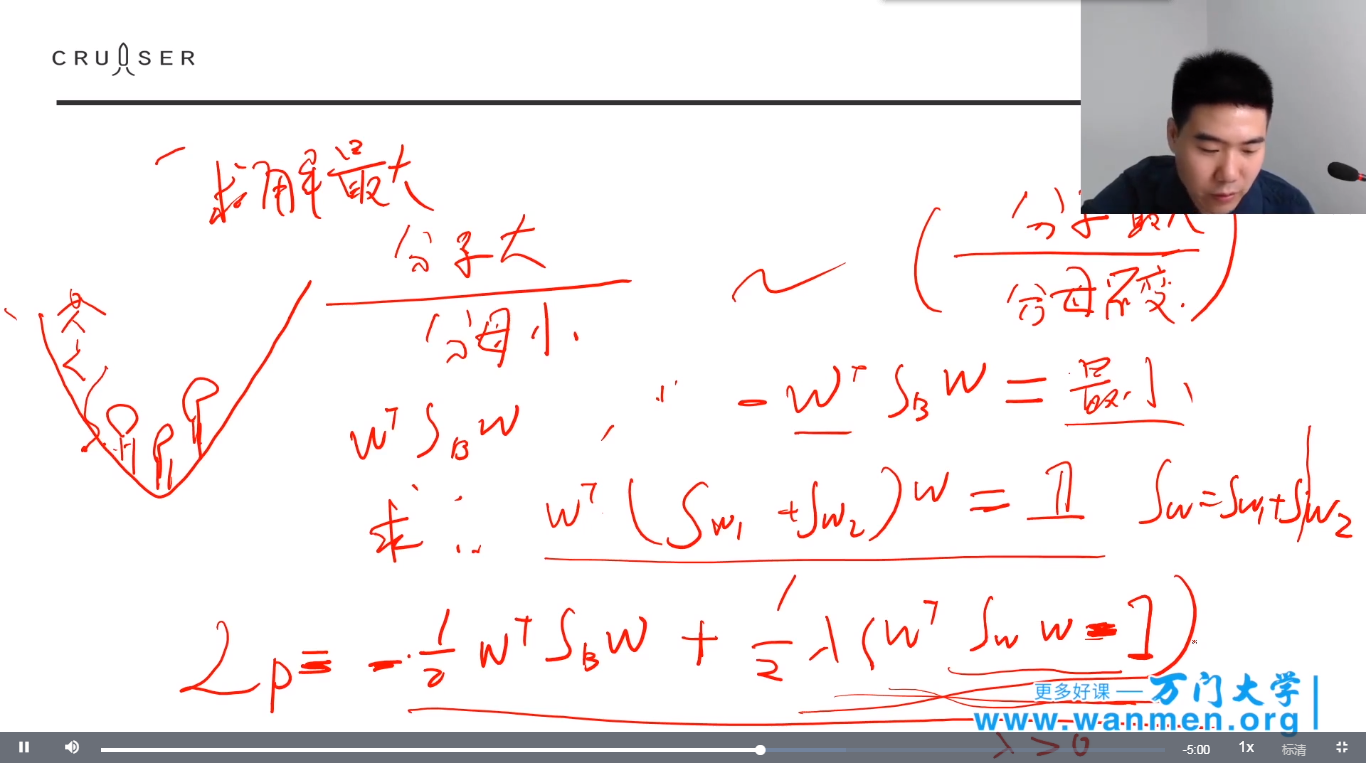 CRUISER
求解最大
分子大
分母小.
分子最大
分母不变.
W^T S_B W
- W^T S_B W = 最小
求
W^T (S_{W1} + S_{W2}) W = 1
S_W = S_{W1} + S_{W2}
L_P = - 1/2 W^T S_B W + 1/2 λ (W^T S_W W - 1)
λ > 0
更多好课 — 万门大学
www.wanmen.org
-5:00
1x
标清